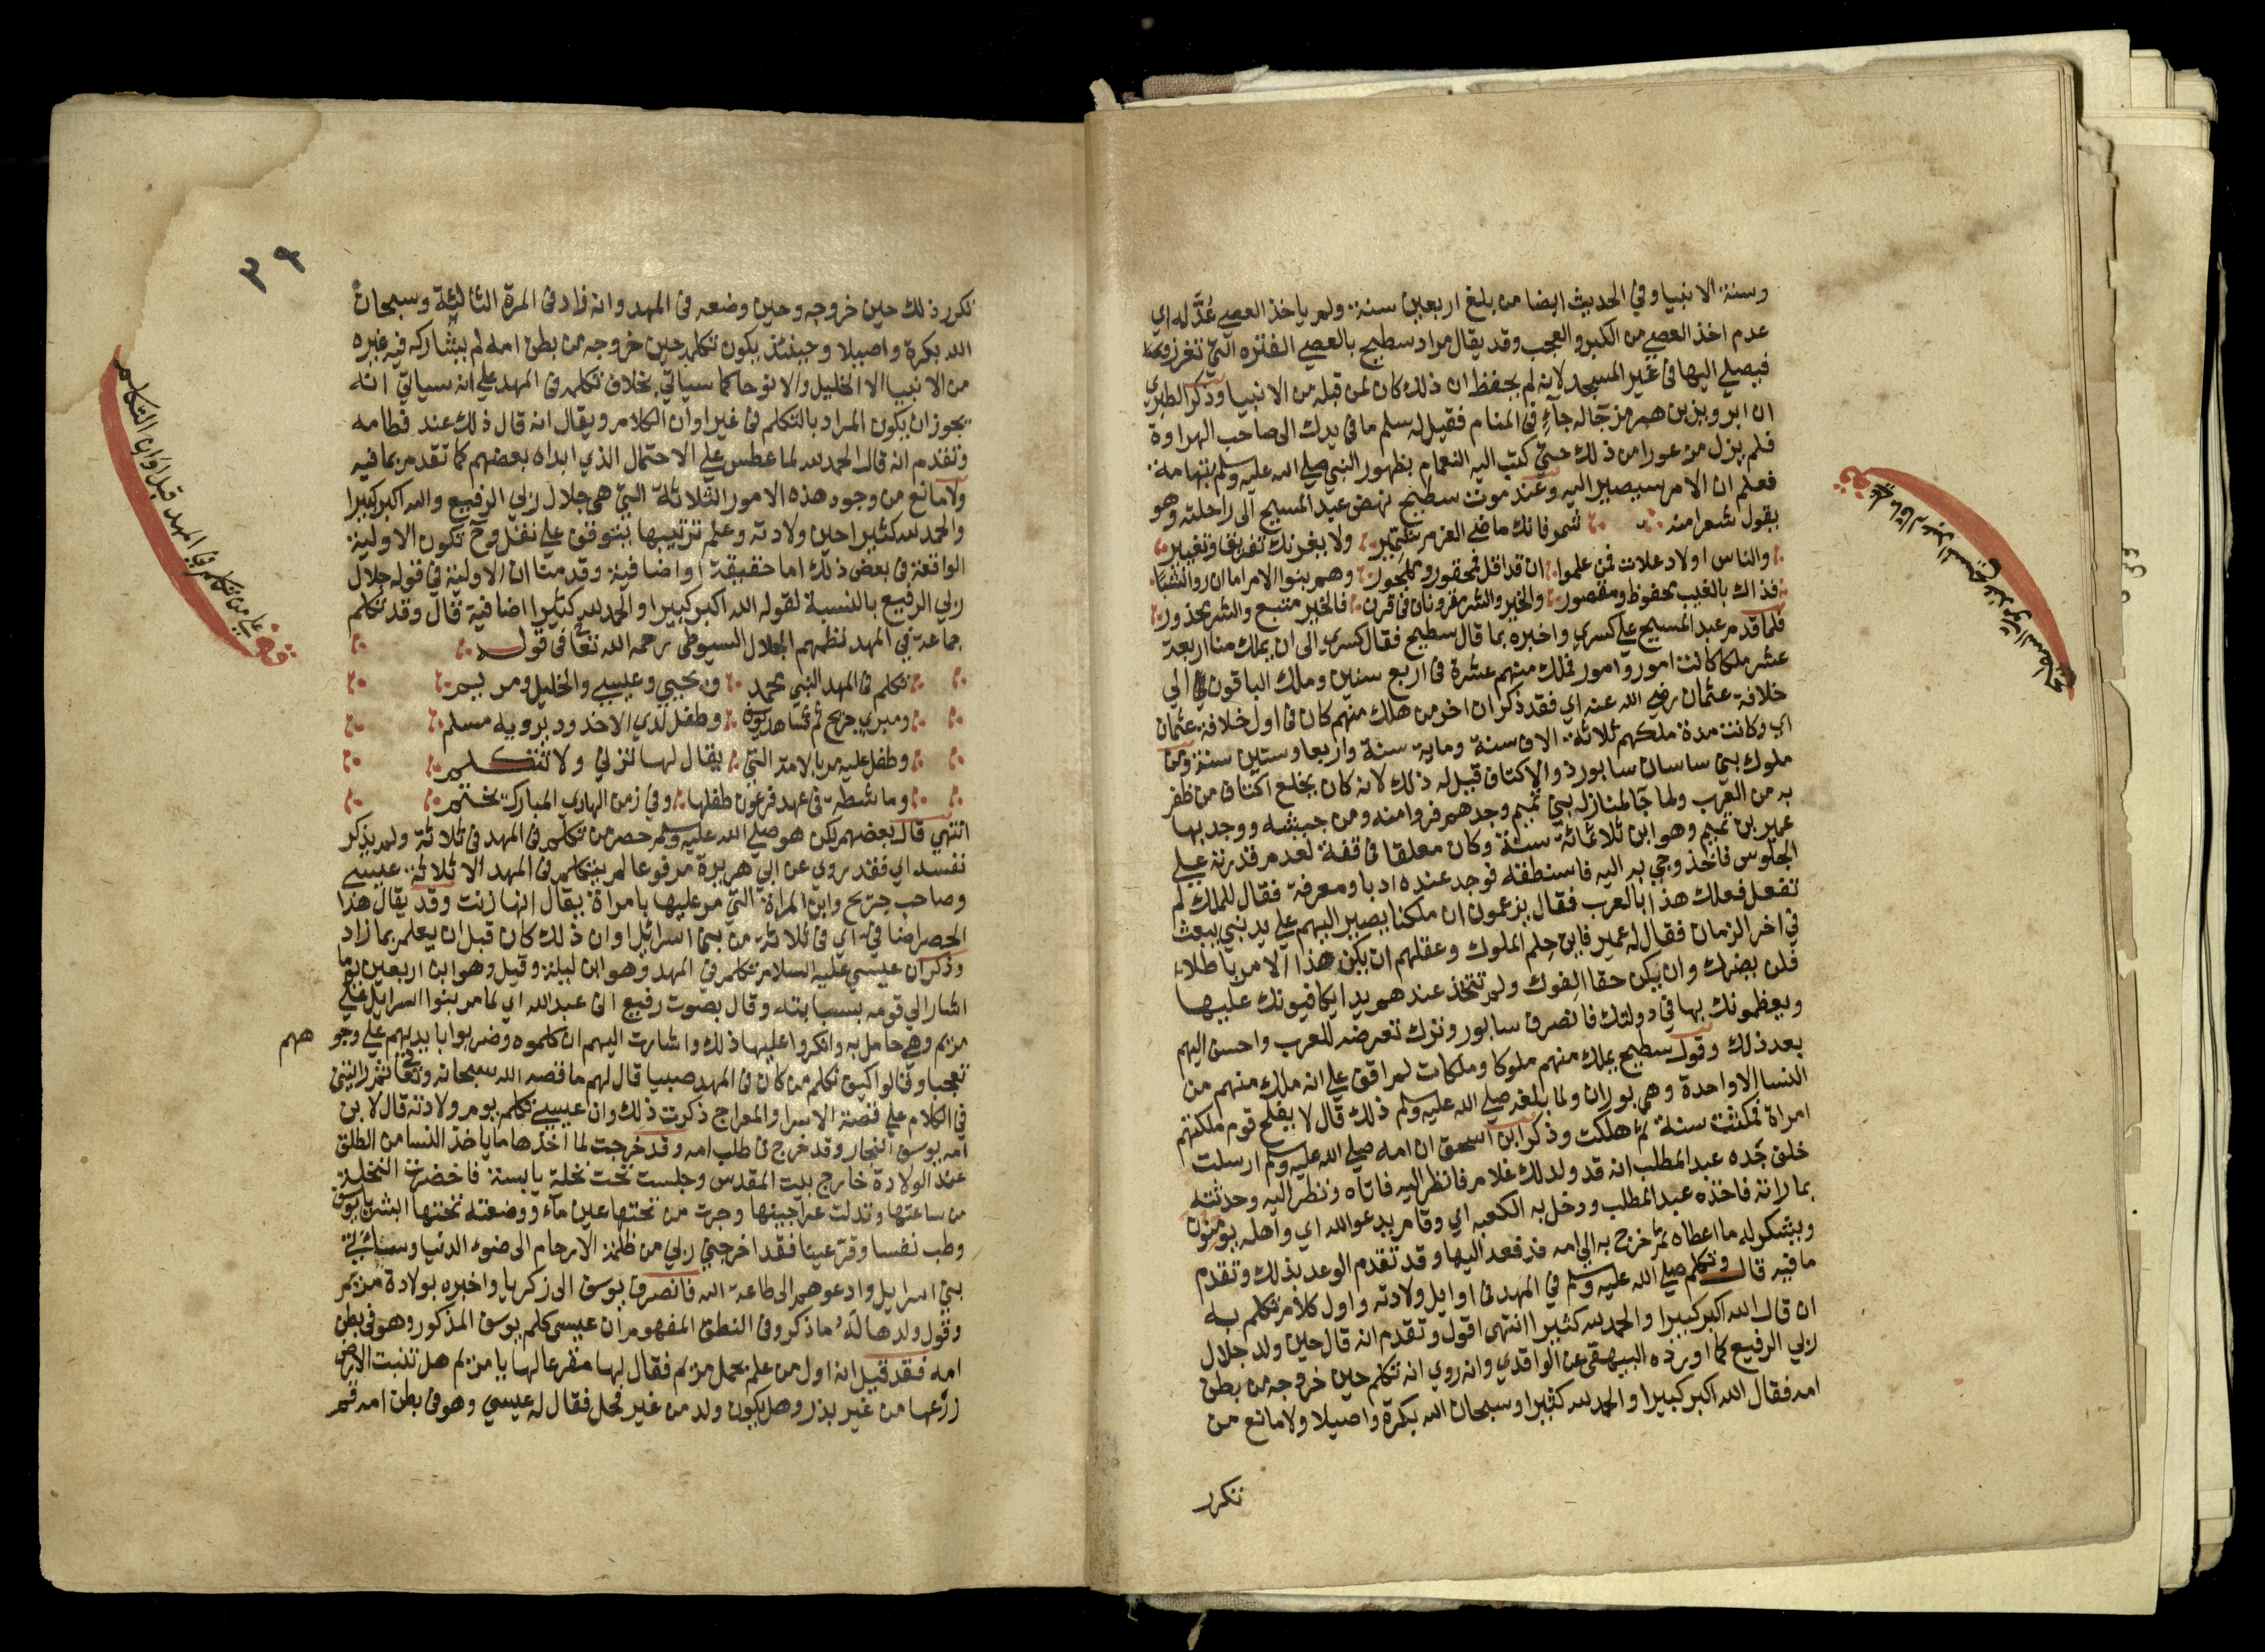 وسنة الانبيا وفي الحديث ايضا من بلغ اربعين سنة ولم ياخذ العصى عُدَّ له اي
عدم اخذ العصى من الكبر والعجب وقد يقال مراد سطيح بالعصي الفتره التي تغرز
فيصلي اليها في غير المسجد لانه لم يحفظ ان ذلك كان لمن قبله من الانبيا وذكر الطبري
ان ابرويز بن هرمز جاله جآءٍ في المنام فقيل له سلم ما في يدك الى صاحب الهراوة
فلم يزل مذعورا من ذلك حتي كتب اليه النعمام بظهور النبي صلى الله عليه وسلم بتهامة
فعلم ان الامر سيصير اليه وعند موت سطيح نهض عبد المسيح الى راحلته وهو
يقول شعرا منه شمر فانك ماضي العزم شمير ولا يغرنك تفريق وتغيير
والناس اولاد علات فمن علموا ان قد اقل فمحقور ومهجور وهم بنوا الامر اما ان راو انشبا
فذاك بالغيب محفوظ ومنصور والخير والشر مقرونان في قرن فالخير متبع والشر محذور
فلما قدم عبد المسيح على كسري واخبره بما قال سطيح فقال كسري الى ان يملك منا اربعة
عشر ملكا كانت امور وامور فملك منهم عشرة في اربع سنين وملك الباقون الي
خلافة عثمان رضي الله عنه اي فقد ذكر ان اخر من هلك منهم كان في اول خلافة عثمان
اي وكانت مدة ملكهم ثلاثة الاف سنة وماية سنة واربعا وستين سنة ومن
ملوك بني ساسان سابور ذو الاكتاف قيل له ذلك لانه كان يخلع اكتاف من ظفر
به من العرب ولما جا لمنازله بني تميم وجدهم فروا منه ومن جيشه ووجد بها
عمير بن تميم وهو ابن ثلاثمائة سنة وكان معلقا في قفة لعدم قدرته على
الجلوس فاخذ وجي به اليه فاستنطقه فوجد عنده ادبا ومعرفة فقال للملك لم
تفعل فعلك هذا بالعرب فقال يزعمون ان ملكنا يصير اليهم على يد نبي يبعث
في اخر الزمان فقال له عمير فاين حِلم الملوك وعقلهم ان يكن هذا الامر باطلا
فلن يضرك وان يكن حقا الفوك ولم تتخذ عندهم يدا يكافيونك عليها
ويعظمونك بها في دولتك فانصرف سابور وترك تعرضه للعرب واحسن اليهم
بعد ذلك وقول سطيح يملك منهم ملوكا وملكات لم اقف على انه ملك منهم من
النسا الا واحدة وهي بوران ولما بلغه صلى الله عليه وسلم ذلك قال لا يفلح قوم ملكتهم
امراة فمكثت سنة ثم هلكت وذكر ابن اسحق ان امه صلى الله عليه وسلم ارسلت
خلف جَده عبد المطلب انه قد ولد لك غلام فانظر اليه فاتاه ونظر اليه وحدثته
بما راته فاخذه عبد المطلب ودخل به الكعبه اي وقام يدعو الله اي واهله يومنون
ويشكر له ما اعطاه ثم خرج به الي امه فدفعه اليها وقد تقدم الوعد بذلك وتقدم
ما فيه قال وتكلم صلى الله عليه وسلم في المهد في اوايل ولادته واول كلام تكلم به
ان قال الله اكبر كبيرا والحمد لله كثيرا انتهى اقول وتقدم انه قال حين ولد جلال
ربي الرفيع كما اورده البيهقى عن الواقدي وانه روي انه تكلم حين خروجه من بطن
امه فقال الله اكبر كبيرا والحمد لله كثيرا وسبحان الله بكرة واصيلا ولا مانع من
تكرر
٣٩
تكرر ذلك حين خروجه وحين وضعه فى المهد وانه زاد فى المرة الثالثة وسبحان
الله بكرة واصيلا وحينئذ يكون تكلمه حين خروجه من بطن امه لم يشاركه فيه غيره
من الانبيا الا الخليل والا نوحا كما سياتي بخلاف تكلمه فى المهد على انه سياتي انه
يجوز ان يكون المراد بالتكلم فى غير اوان الكلام ويقال انه قال ذلك عند فطامه
وتقدم انه قال الحمد لله لما عطس علي الاحتمال الذي ابداه بعضهم كما تقدم بما فيه
ولا مانع من وجود هذه الامور الثلاثة التي هى جلال ربي الرفيع والله اكبر كبيرا
والحمد لله كثيرا حين ولادته وعلم ترتيبها يتوقف على نقل وح تكون الاولية
الواقعة فى بعض ذلك اما حقيقة او اضافية وقدمنا ان الاولية في قوله جلال
ربي الرفيع بالنسبة لقوله الله اكبر كبيرا والحمد لله كثيرا اضافية قال وقد تكلم
جماعة في المهد نظمهم الجلال السيوطى رحمه الله تعا فى قوله
تكلم فى المهد النبي محمد ويحيي وعيسي والخليل ومريم
ومبري جريح ثم شاهد يوسف وطفل لدي الاخدود يرويه مسلم
وطفل عليه مر بالامة التي يقال لها تزني ولا تتكلم
وماشطة في عهد فرعون طفلها وفي زمن الهادي المبارك يختم
انتهي قال بعضهم لكن هو صلى الله عليه وسلم حصر من تكلم فى المهد فى ثلاثة ولم يذكر
نفسه اي فقد روي عن ابي هريرة مرفوعا لم يتكلم فى المهد الا ثلاثة عيسي
وصاحب جريج وابن المراة التي مر عليها بامراة يقال انها زنت وقد يقال هذا
الحصر اضافي اي فى ثلاثة من بنى اسرائيل او ان ذلك كان قبل ان يعلم بما زاد
وذكر ان عيسي عليه السلام تكلم في المهد وهو ابن ليلة وقيل وهو ابن اربعين يوما
اشار الي قومه بسبابته وقال بصوت رفيع انى عبد الله اي لما مر بنوا اسرايل على
مريم وهي حامل به وانكروا عليها ذلك واشارت اليهم ان كلموه وضربوا بايديهم على وجو
ههم
تعجبا وقالوا كيف نكلم من كان في المهد صبيا قال لهم ما قصه الله سبحانه وتعا ثم رايتني
في الكلام على قصة الاسرا والمعراج ذكرت ذلك وان عيسي تكلم يوم ولادته قال لابن
امه يوسف النجار وقد خرج فى طلب امه وقد خرجت لما اخذها ما ياخذ النسا من الطلق
عند الولادة خارج بيت المقدس وجلست تحت نخلة يابسة فاخضرت النخلة
من ساعتها وتدلت عراجينها وجرت من تحتها عين مآء ووضعته تحتها ابشر يا يوسف
وطب نفسا وقر عينا فقد اخرجني ربي من ظلمة الارحام الى ضوء الدنيا وساتي
بني اسرايل وادعوهم الى طاعة الله فانصرف يوسف الى زكريا واخبره بولادة مريم
وقول ولدها له ما ذكر وفى النطق المفهوم ان عيسى كلم يوسف المذكور وهو في بطن
امه فقد قيل انه اول من علم بحمل مريم فقال لها مقرعا لها يا مريم هل تنبت الارض
زرعها من غير بذر وهل يكون ولد من غير فحل فقال له عيسي وهو فى بطن امه قم
على من تكلم في المهد قبل اوان التكلم